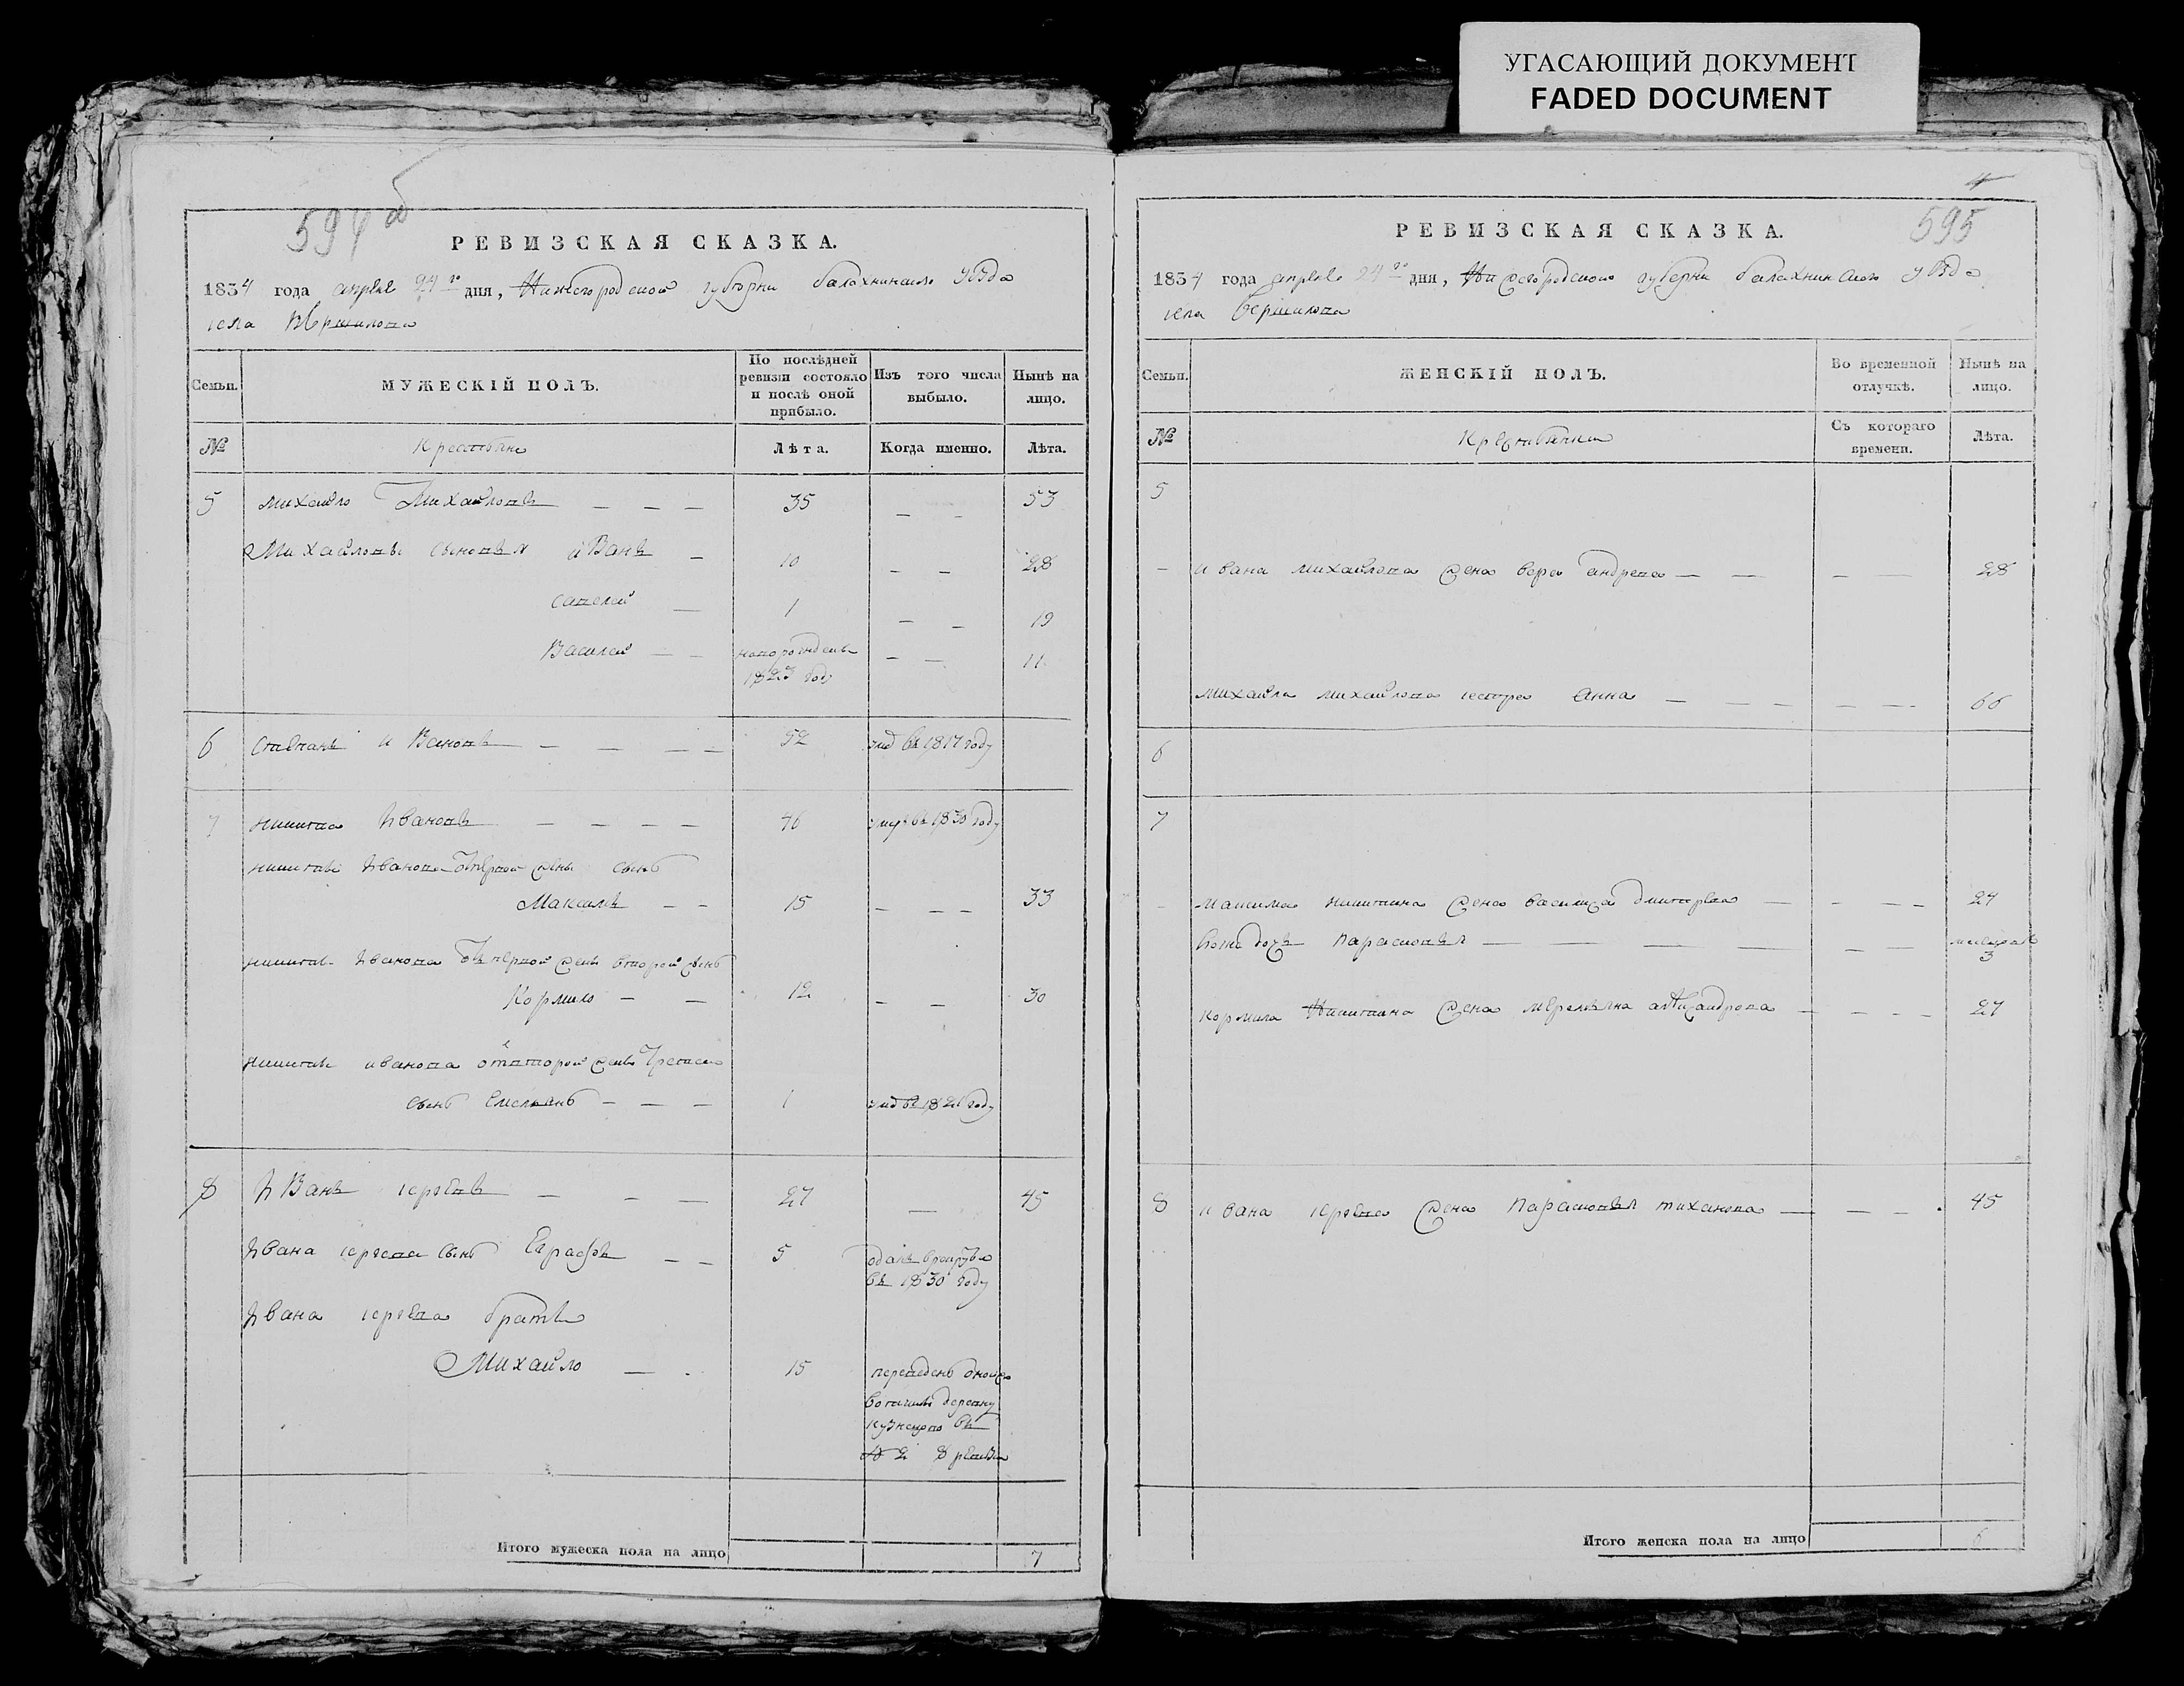 УГАСАЮЩИЙ ДОКУМЕНТ
FADED DOCUMENT
594 об
РЕВИЗСКАЯ СКАЗКА.
1834 года апреля 24 го дня, Нижегородской губерни балахнинскаго уѣзда
села Вершилова
Семьи.
МУЖЕСКІЙ ПОЛЪ.
По послѣдней ревизіи состояло и послѣ оной прибыло.
Изъ того числа выбыло.
Нынѣ на лицо.
№
Крестьяне
Лѣта.
Когда именно.
Лѣта.
5 михаило Михаиловъ — — — 35 — — 53
Михаиловы сыновья иванъ — 10 — — 28
савелей — 1 — — 19
Василей — — новорожденъ 1823 году — — 11
6 степанъ ивановъ — — — — 52 умр въ 1817 году
7 никита Ивановъ — — — — 46 умре въ 1830 году
никиты Иванова первой жены сынъ
Максимъ — — 15 — — — 33
никиты Иванова первой жены второй сынъ
Кормило — — 12 — — 30
никиты иванова от второй жены третей
сынъ Емельянъ — — — 1 умр въ 1821 году
8 Иванъ сергѣевъ — — — 27 — 45
Ивана сергеева сынъ Евграфъ — — 5 оданъ врекруты въ 1830 году
Ивана сергѣева братъ
Михаило — 15 переведенъ
вотчины деревну
въ
№ 2 8 ревизіи
Итого мужеска пола на лицо 7
595
РЕВИЗСКАЯ СКАЗКА.
1834 года апреля 24 го дня, Нижегородской губерни балахнинскаго уѣзда
села Вершилова
Семьи.
ЖЕНСКІЙ ПОЛЪ.
Во временной отлучкѣ.
Нынѣ на лицо.
№
Крестьянки
Съ котораго времени.
Лѣта.
5
— ивана михаилова жена вера андрева — — — — 28
михаила михаилова сестра Анна — — — — — 66
6
7
— максима никитина жена василиса дмитрева — — — — 24
дочь парасковья — — — — — — 3
кормила Никитина жена александрова — — — — 27
8 ивана сергѣева жена парасковья тиханова — — — 45
Итого женска пола на лицо 6